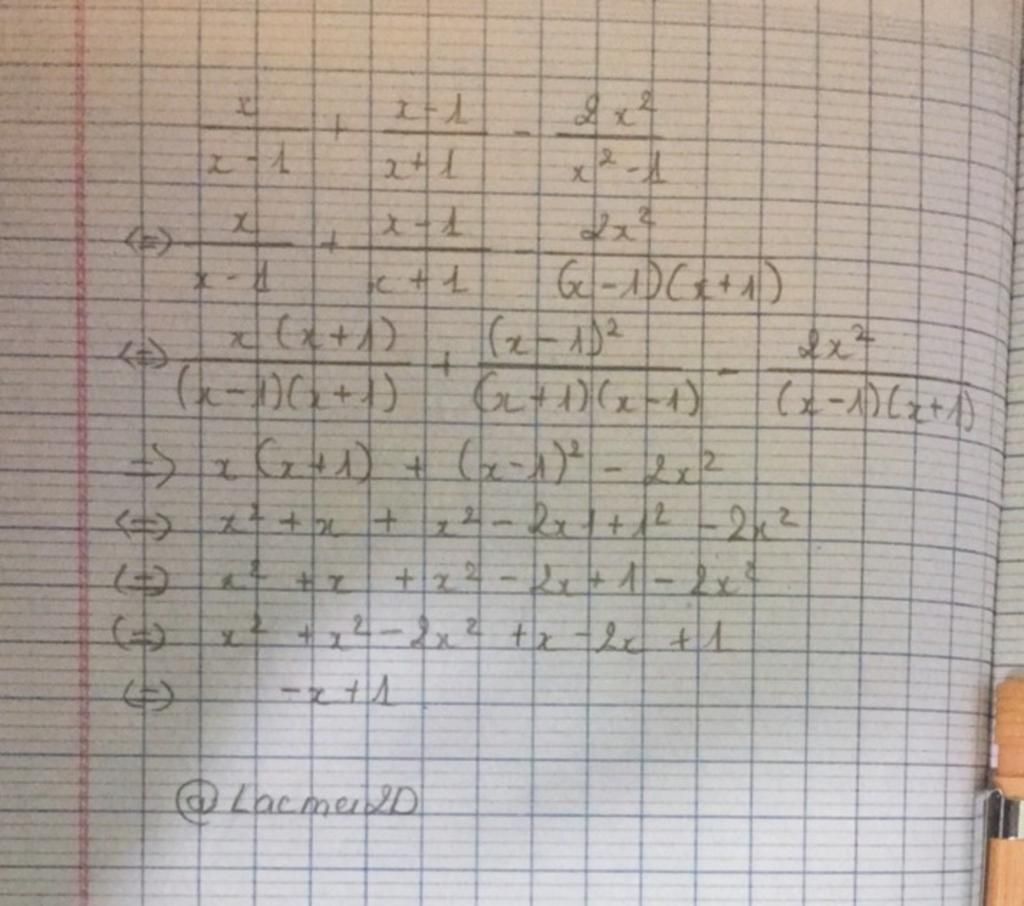 x/(x-1) + (x-1)/(x+1) - 2x²/(x²-1)
⇔ x/(x-1) + (x-1)/(x+1) - 2x²/((x-1)(x+1))
⇔ x(x+1)/((x-1)(x+1)) + (x-1)²/((x+1)(x-1)) - 2x²/((x-1)(x+1))
⇒ x(x+1) + (x-1)² - 2x²
⇔ x² + x + x² - 2x1 + 1² - 2x²
⇔ x² + x + x² - 2x + 1 - 2x²
⇔ x² + x² - 2x² + x - 2x + 1
⇔ -x + 1